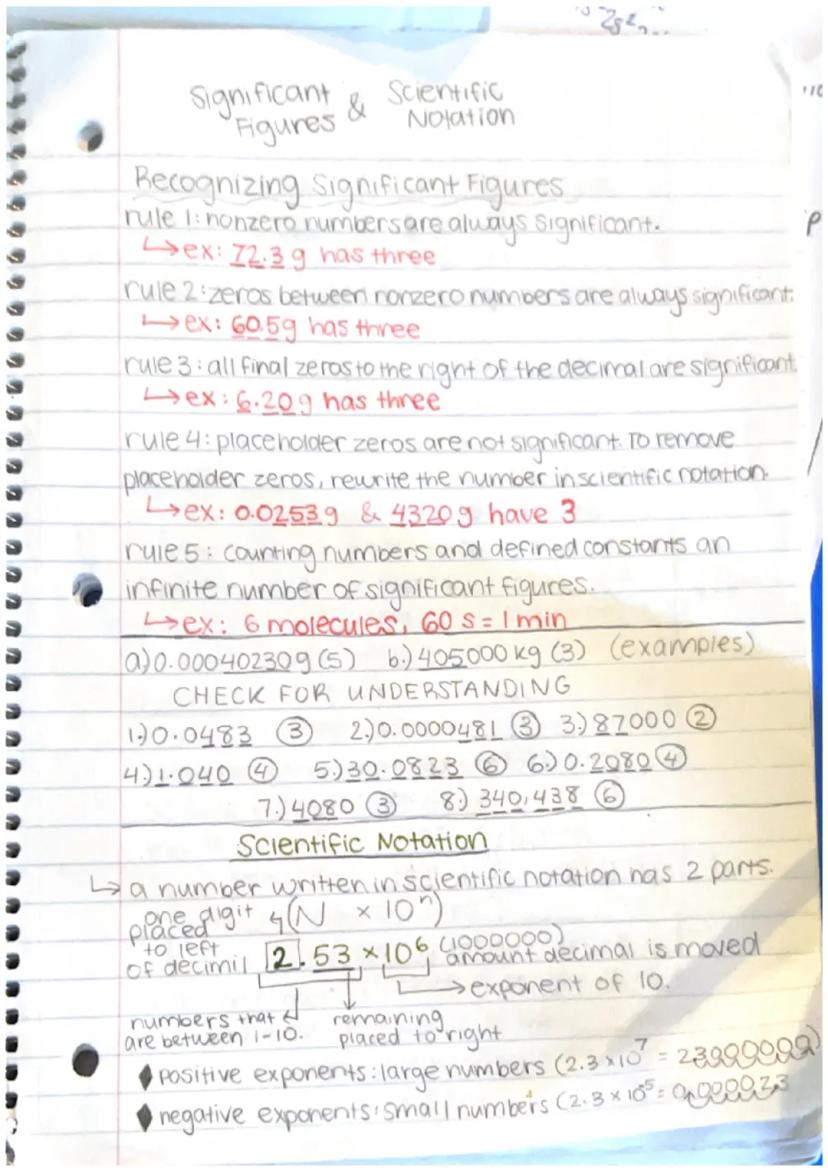 Significant & Scientific
Figures Notation
Recognizing Significant Figures
rule 1: nonzero numbers are always significant.
↳ex: 72.3 g has three
rule 2: zeros between nonzero numbers are always significant.
↳ex: 60.5g has three
rule 3: all final zeros to the right of the decimal are significant
↳ex: 6.20 g has three
rule 4: placeholder zeros are not significant. To remove
placeholder zeros, rewrite the number in scientific notation.
↳ex: 0.0253 g & 4320 g have 3
rule 5: counting numbers and defined constants an
infinite number of significant figures.
↳ex: 6 molecules, 60 s = 1 min
a.) 0.00040230g (5) b.) 405000 kg (3) (examples)
CHECK FOR UNDERSTANDING
1.) 0.0483 ③ 2.) 0.0000481 ③ 3.) 87000 ②
4.) 1.040 ④ 5.) 30.0823 ⑥ 6.) 0.2080 ④
7.) 4080 ③ 8.) 340,438 ⑥
Scientific Notation
↳ a number written in scientific notation has 2 parts.
(N × 10ⁿ)
one digit
placed
to left
of decimil
2.53 × 10⁶ (1000000)
amount decimal is moved
→ exponent of 10.
numbers that
are between 1-10.
remaining
placed to right
♦ positive exponents: large numbers (2.3 × 10⁷ = 23000000)
♦ negative exponents: small numbers (2.3 × 10⁻⁵ = 0.000023